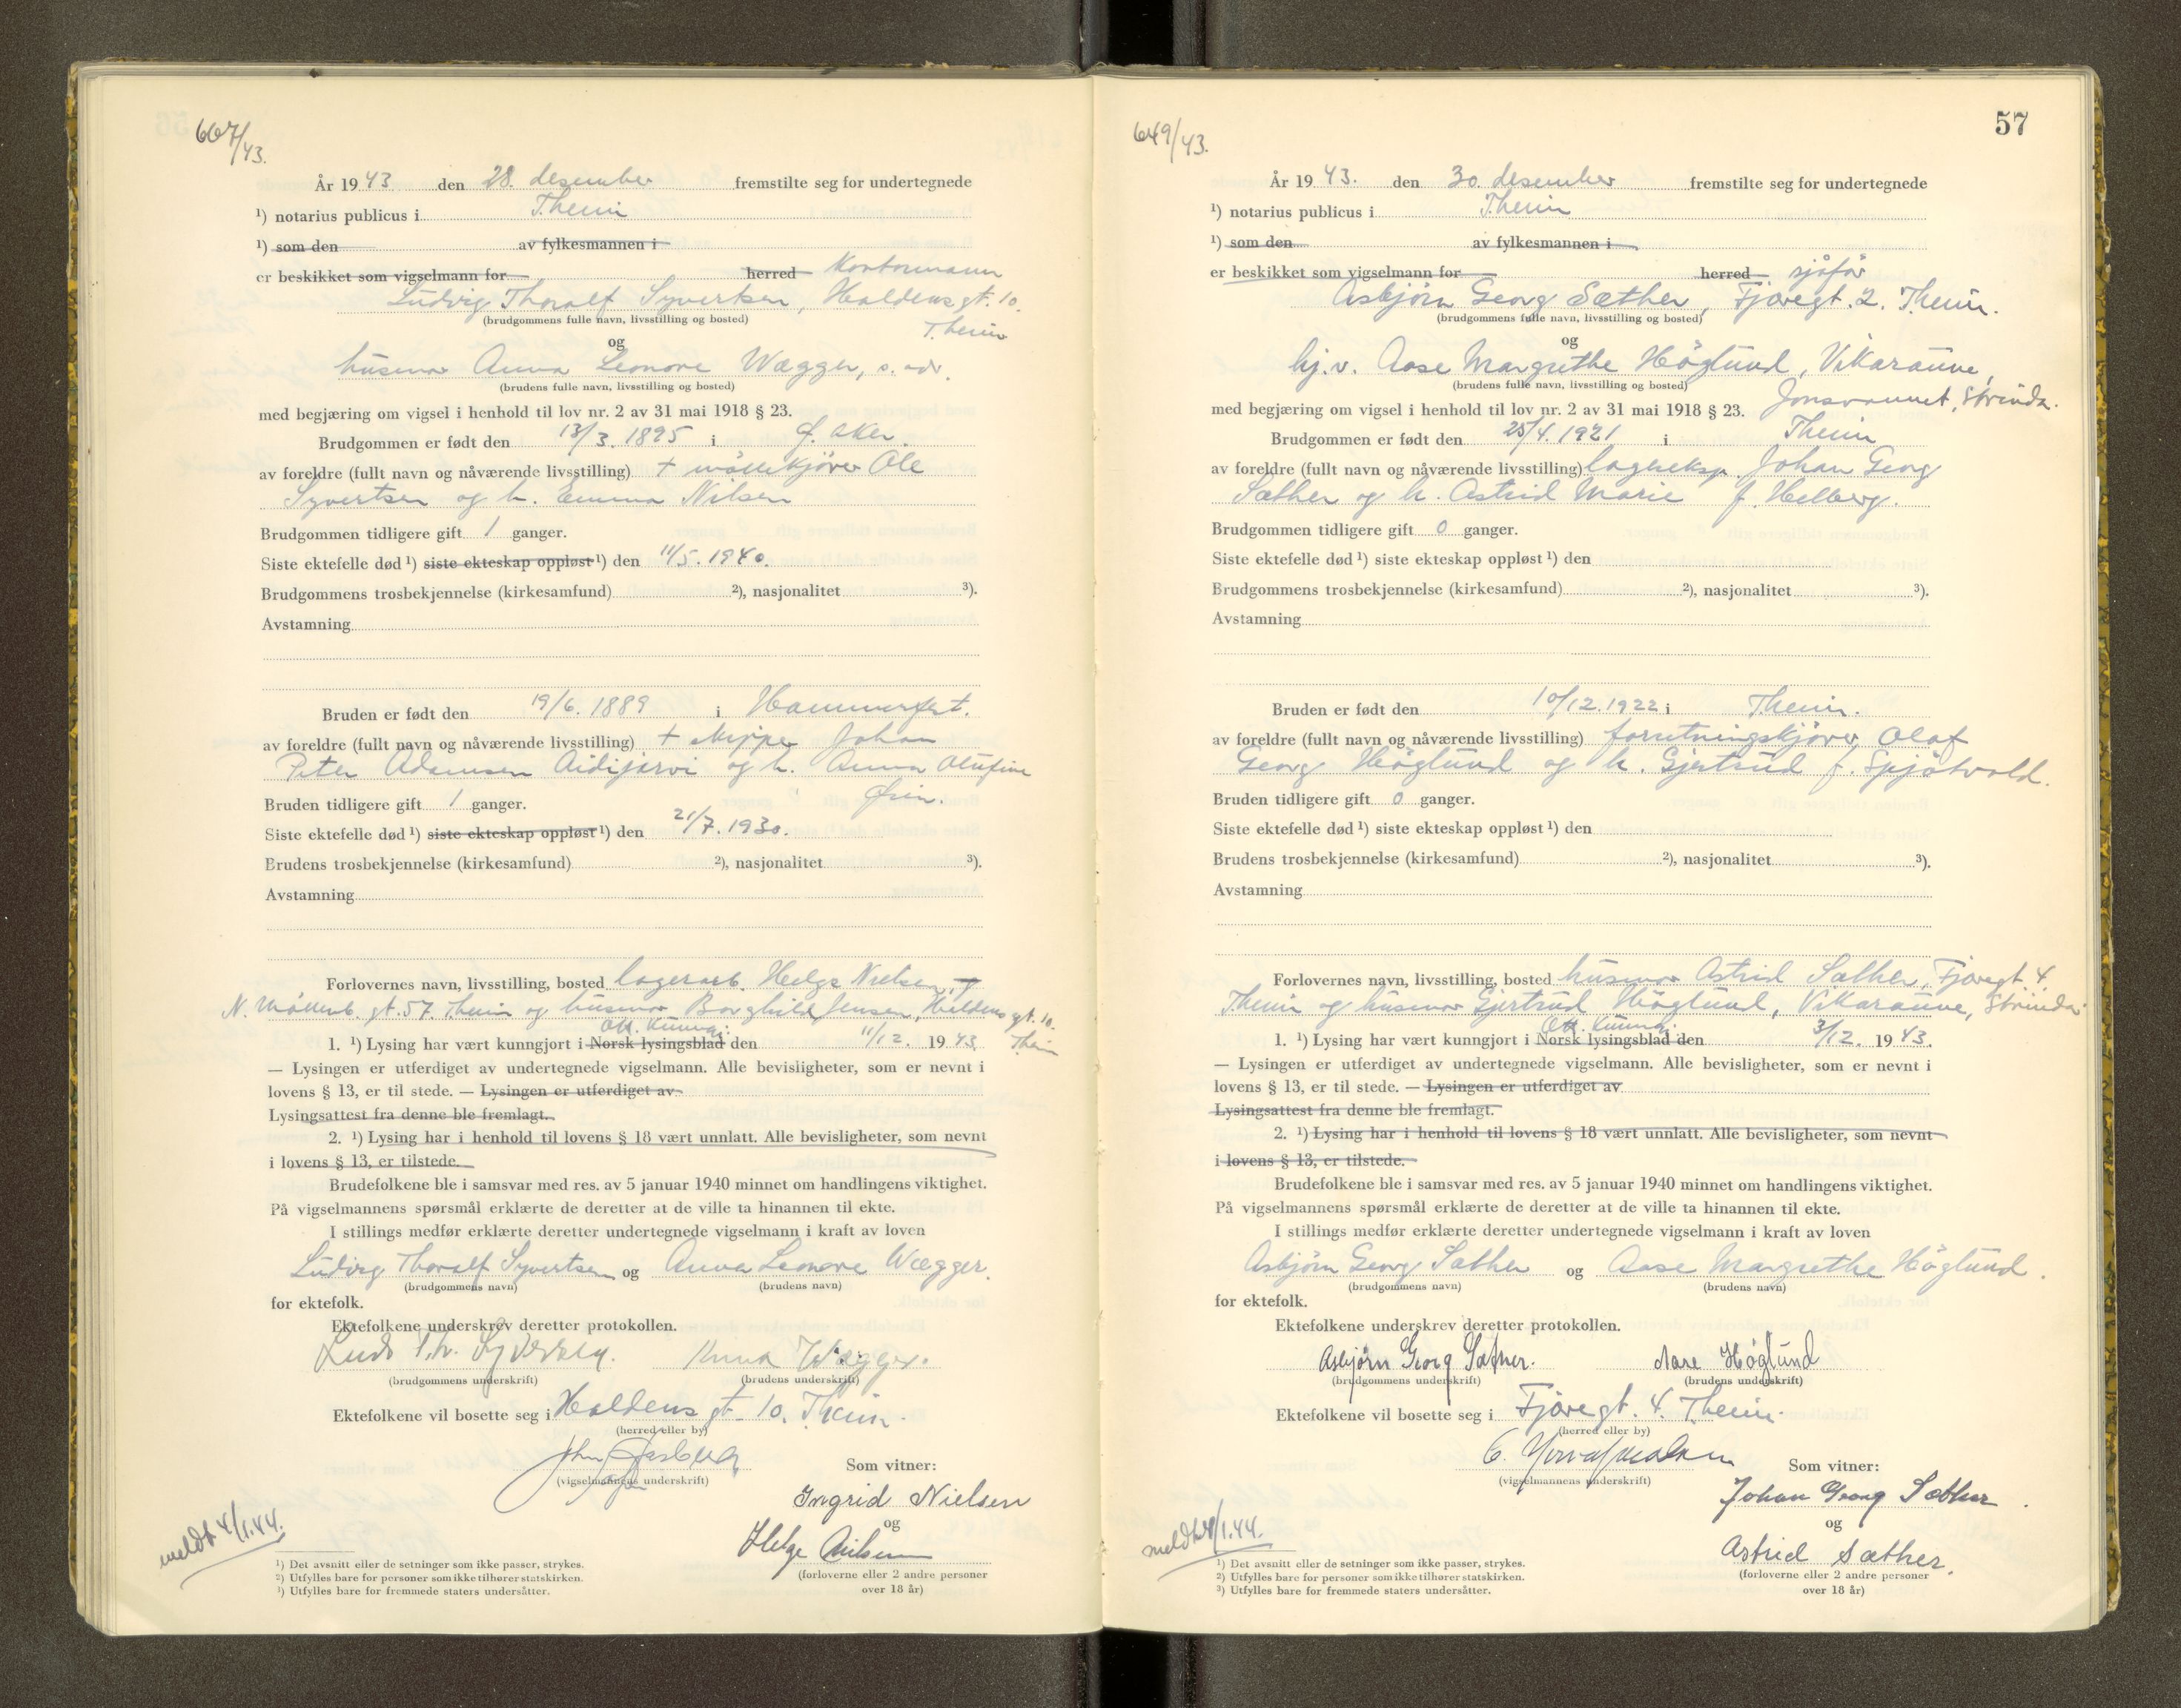 667/43.
År 1943 den 28. desember fremstilte seg for undertegnede
¹) notarius publicus i Theim
¹) som den av fylkesmannen i
er beskikket som vigselmann for herred Kontormann
Ludvig Thoralf Syvertsen, Haldens gt. 10.
(brudgommens fulle navn, livsstilling og bosted) Theim
og
husmor Anna Leonore Wægger, s. adr.
(brudens fulle navn, livsstilling og bosted)
med begjæring om vigsel i henhold til lov nr. 2 av 31 mai 1918 § 23.
Brudgommen er født den 13/3. 1895 i Ø. Aker.
av foreldre (fullt navn og nåværende livsstilling) + møllekjører Ole
Syvertsen og h. Emma Nilsen
Brudgommen tidligere gift 1 ganger.
Siste ektefelle død ¹) siste ekteskap oppløst ¹) den 11/5. 1940.
Brudgommens trosbekjennelse (kirkesamfund) ²), nasjonalitet ³).
Avstamning
Bruden er født den 19/6. 1889 i Hammerfest.
av foreldre (fullt navn og nåværende livsstilling) + skipper Johan
Peter Adamsen Aidijarvi og h. Anna Olufine
Bruden tidligere gift 1 ganger.
Siste ektefelle død ¹) siste ekteskap oppløst ¹) den 21/7. 1930.
Brudens trosbekjennelse (kirkesamfund) ²), nasjonalitet ³).
Avstamning
Forlovernes navn, livsstilling, bosted lagerarb. Helge Nielsen,
N. Møllenb. gt. 57. Theim og husmor Borghild Jensen, Haldens gt. 10.
Off. kunngj. Theim
1. ¹) Lysing har vært kunngjort i Norsk lysingsblad den 11/12. 1943.
— Lysingen er utferdiget av undertegnede vigselmann. Alle bevisligheter, som er nevnt i
lovens § 13, er til stede. — Lysingen er utferdiget av
Lysingsattest fra denne ble fremlagt.
2. ¹) Lysing har i henhold til lovens § 18 vært unnlatt. Alle bevisligheter, som nevnt
i lovens § 13, er tilstede.
Brudefolkene ble i samsvar med res. av 5 januar 1940 minnet om handlingens viktighet.
På vigselmannens spørsmål erklærte de deretter at de ville ta hinannen til ekte.
I stillings medfør erklærte deretter undertegnede vigselmann i kraft av loven
Ludvig Thoralf Syvertsen og Anna Leonore Wægger.
(brudgommens navn) (brudens navn)
for ektefolk.
Ektefolkene underskrev deretter protokollen.
Ludv Th. Syvertsen. Anna Wægger.
(brudgommens underskrift) (brudens underskrift)
Ektefolkene vil bosette seg i Haldens gt. 10. Theim.
(herred eller by)
(vigselmannens underskrift)
Som vitner:
Ingrid Nielsen
og
Helge Nilsen
(forloverne eller 2 andre personer
over 18 år)
meldt 4/1.44.
¹) Det avsnitt eller de setninger som ikke passer, strykes.
²) Utfylles bare for personer som ikke tilhører statskirken.
³) Utfylles bare for fremmede staters undersåtter.
57
649/43.
År 1943. den 30. desember fremstilte seg for undertegnede
¹) notarius publicus i Theim
¹) som den av fylkesmannen i
er beskikket som vigselmann for herred sjåfør
Asbjørn Georg Sæther, Fjæregt. 2. Theim.
(brudgommens fulle navn, livsstilling og bosted)
og
hj.v. Aase Margrethe Höglund, Vikaraune,
(brudens fulle navn, livsstilling og bosted)
med begjæring om vigsel i henhold til lov nr. 2 av 31 mai 1918 § 23. Jonsvannet, Strinda.
Brudgommen er født den 25/4. 1921 i Theim
av foreldre (fullt navn og nåværende livsstilling) lagereksp. Johan Georg
Sæther og h. Astrid Marie f. Helberg.
Brudgommen tidligere gift 0 ganger.
Siste ektefelle død ¹) siste ekteskap oppløst ¹) den
Brudgommens trosbekjennelse (kirkesamfund) ²), nasjonalitet ³).
Avstamning
Bruden er født den 10/12. 1922 i Theim.
av foreldre (fullt navn og nåværende livsstilling) forretningskjører Olaf
Georg Höglund og h. Gjertrud f. Spjøtvold.
Bruden tidligere gift 0 ganger.
Siste ektefelle død ¹) siste ekteskap oppløst ¹) den
Brudens trosbekjennelse (kirkesamfund) ²), nasjonalitet ³).
Avstamning
Forlovernes navn, livsstilling, bosted husmor Astrid Sæther, Fjæregt. 4.
Theim og husmor Gjertrud Höglund, Vikaraune, Strinda.
Off. kunngj.
1. ¹) Lysing har vært kunngjort i Norsk lysingsblad den 3/12. 1943.
— Lysingen er utferdiget av undertegnede vigselmann. Alle bevisligheter, som er nevnt i
lovens § 13, er til stede. — Lysingen er utferdiget av
Lysingsattest fra denne ble fremlagt.
2. ¹) Lysing har i henhold til lovens § 18 vært unnlatt. Alle bevisligheter, som nevnt
i lovens § 13, er tilstede.
Brudefolkene ble i samsvar med res. av 5 januar 1940 minnet om handlingens viktighet.
På vigselmannens spørsmål erklærte de deretter at de ville ta hinannen til ekte.
I stillings medfør erklærte deretter undertegnede vigselmann i kraft av loven
Asbjørn Georg Sæther og Aase Margrethe Höglund.
(brudgommens navn) (brudens navn)
for ektefolk.
Ektefolkene underskrev deretter protokollen.
Asbjørn Georg Sæther. Aase Höglund
(brudgommens underskrift) (brudens underskrift)
Ektefolkene vil bosette seg i Fjæregt. 4. Theim.
(herred eller by)
(vigselmannens underskrift)
Som vitner:
Johan Georg Sæther.
og
Astrid Sæther.
(forloverne eller 2 andre personer
over 18 år)
meldt 4/1.44.
¹) Det avsnitt eller de setninger som ikke passer, strykes.
²) Utfylles bare for personer som ikke tilhører statskirken.
³) Utfylles bare for fremmede staters undersåtter.